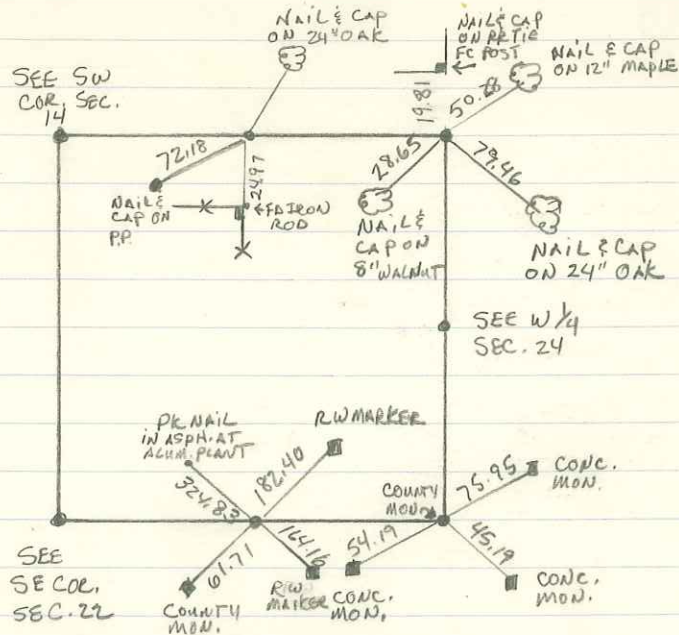 NAIL & CAP
ON 24" OAK
NAIL & CAP
ON RR TIE
FC POST
NAIL & CAP
ON 12" MAPLE
SEE SW
COR. SEC.
14
72.18
24.97
19.81
28.65
79.46
NAIL &
CAP ON
P.P.
FD IRON
ROD
NAIL &
CAP ON
8" WALNUT
NAIL & CAP
ON 24" OAK
SEE W 1/4
SEC. 24
PK NAIL
IN ASPH. AT
ALUM. PLANT
RW MARKER
324.83
182.40
COUNTY
MON.
75.95
CONC.
MON.
SEE
SE COR.
SEC. 22
61.71
164.16
54.19
45.19
COUNTY
MON.
RW
MARKER
CONC.
MON.
CONC.
MON.